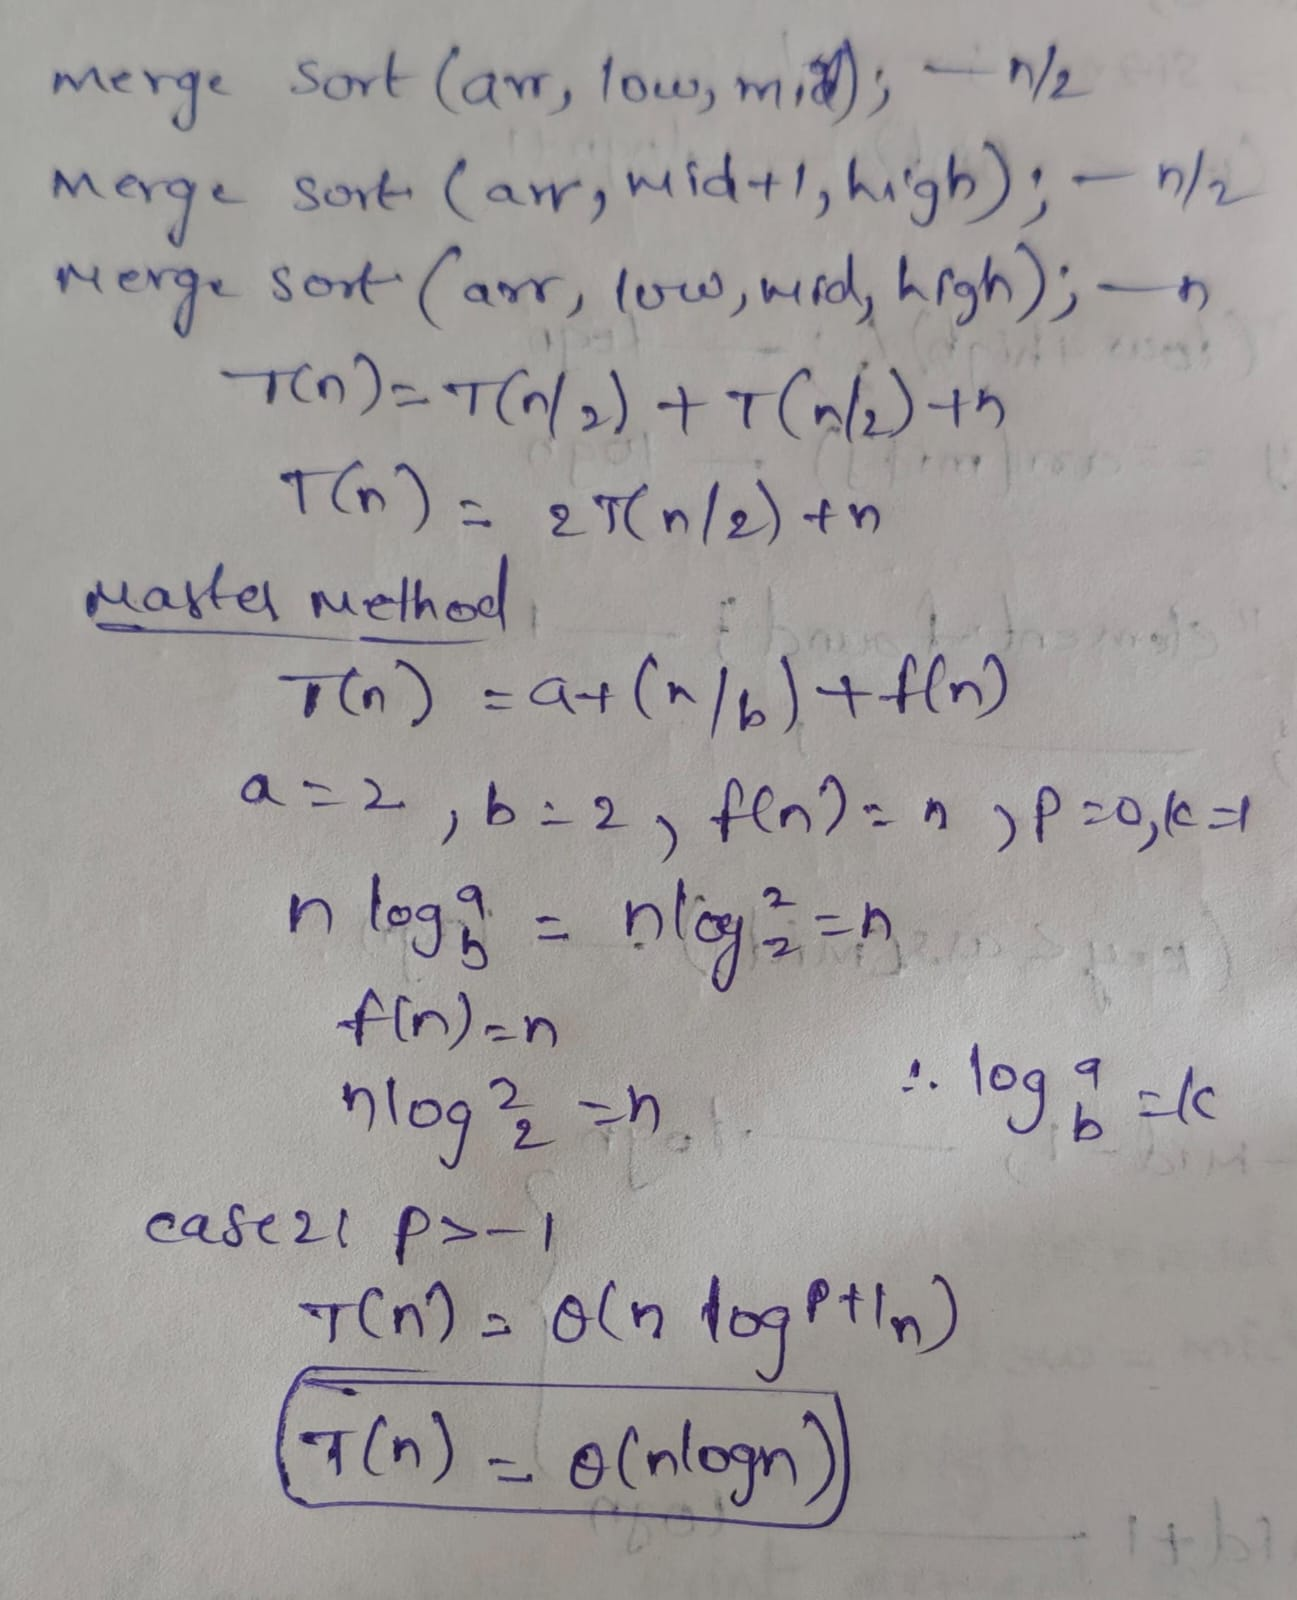 merge sort (arr, low, mid); — n/2
merge sort (arr, mid+1, high); — n/2
merge sort (arr, low, mid, high); — n
T(n) = T(n/2) + T(n/2) + n
T(n) = 2T(n/2) + n
Master Method
T(n) = a+(n/b) + f(n)
a = 2, b = 2, f(n) = n, P = 0, k = 1
n log a b = n log 2 2 = n
f(n) = n
n log 2 2 = n ∴ log a b = k
case 2: P > -1
T(n) = θ(n log P+1 n)
T(n) = θ(nlogn)